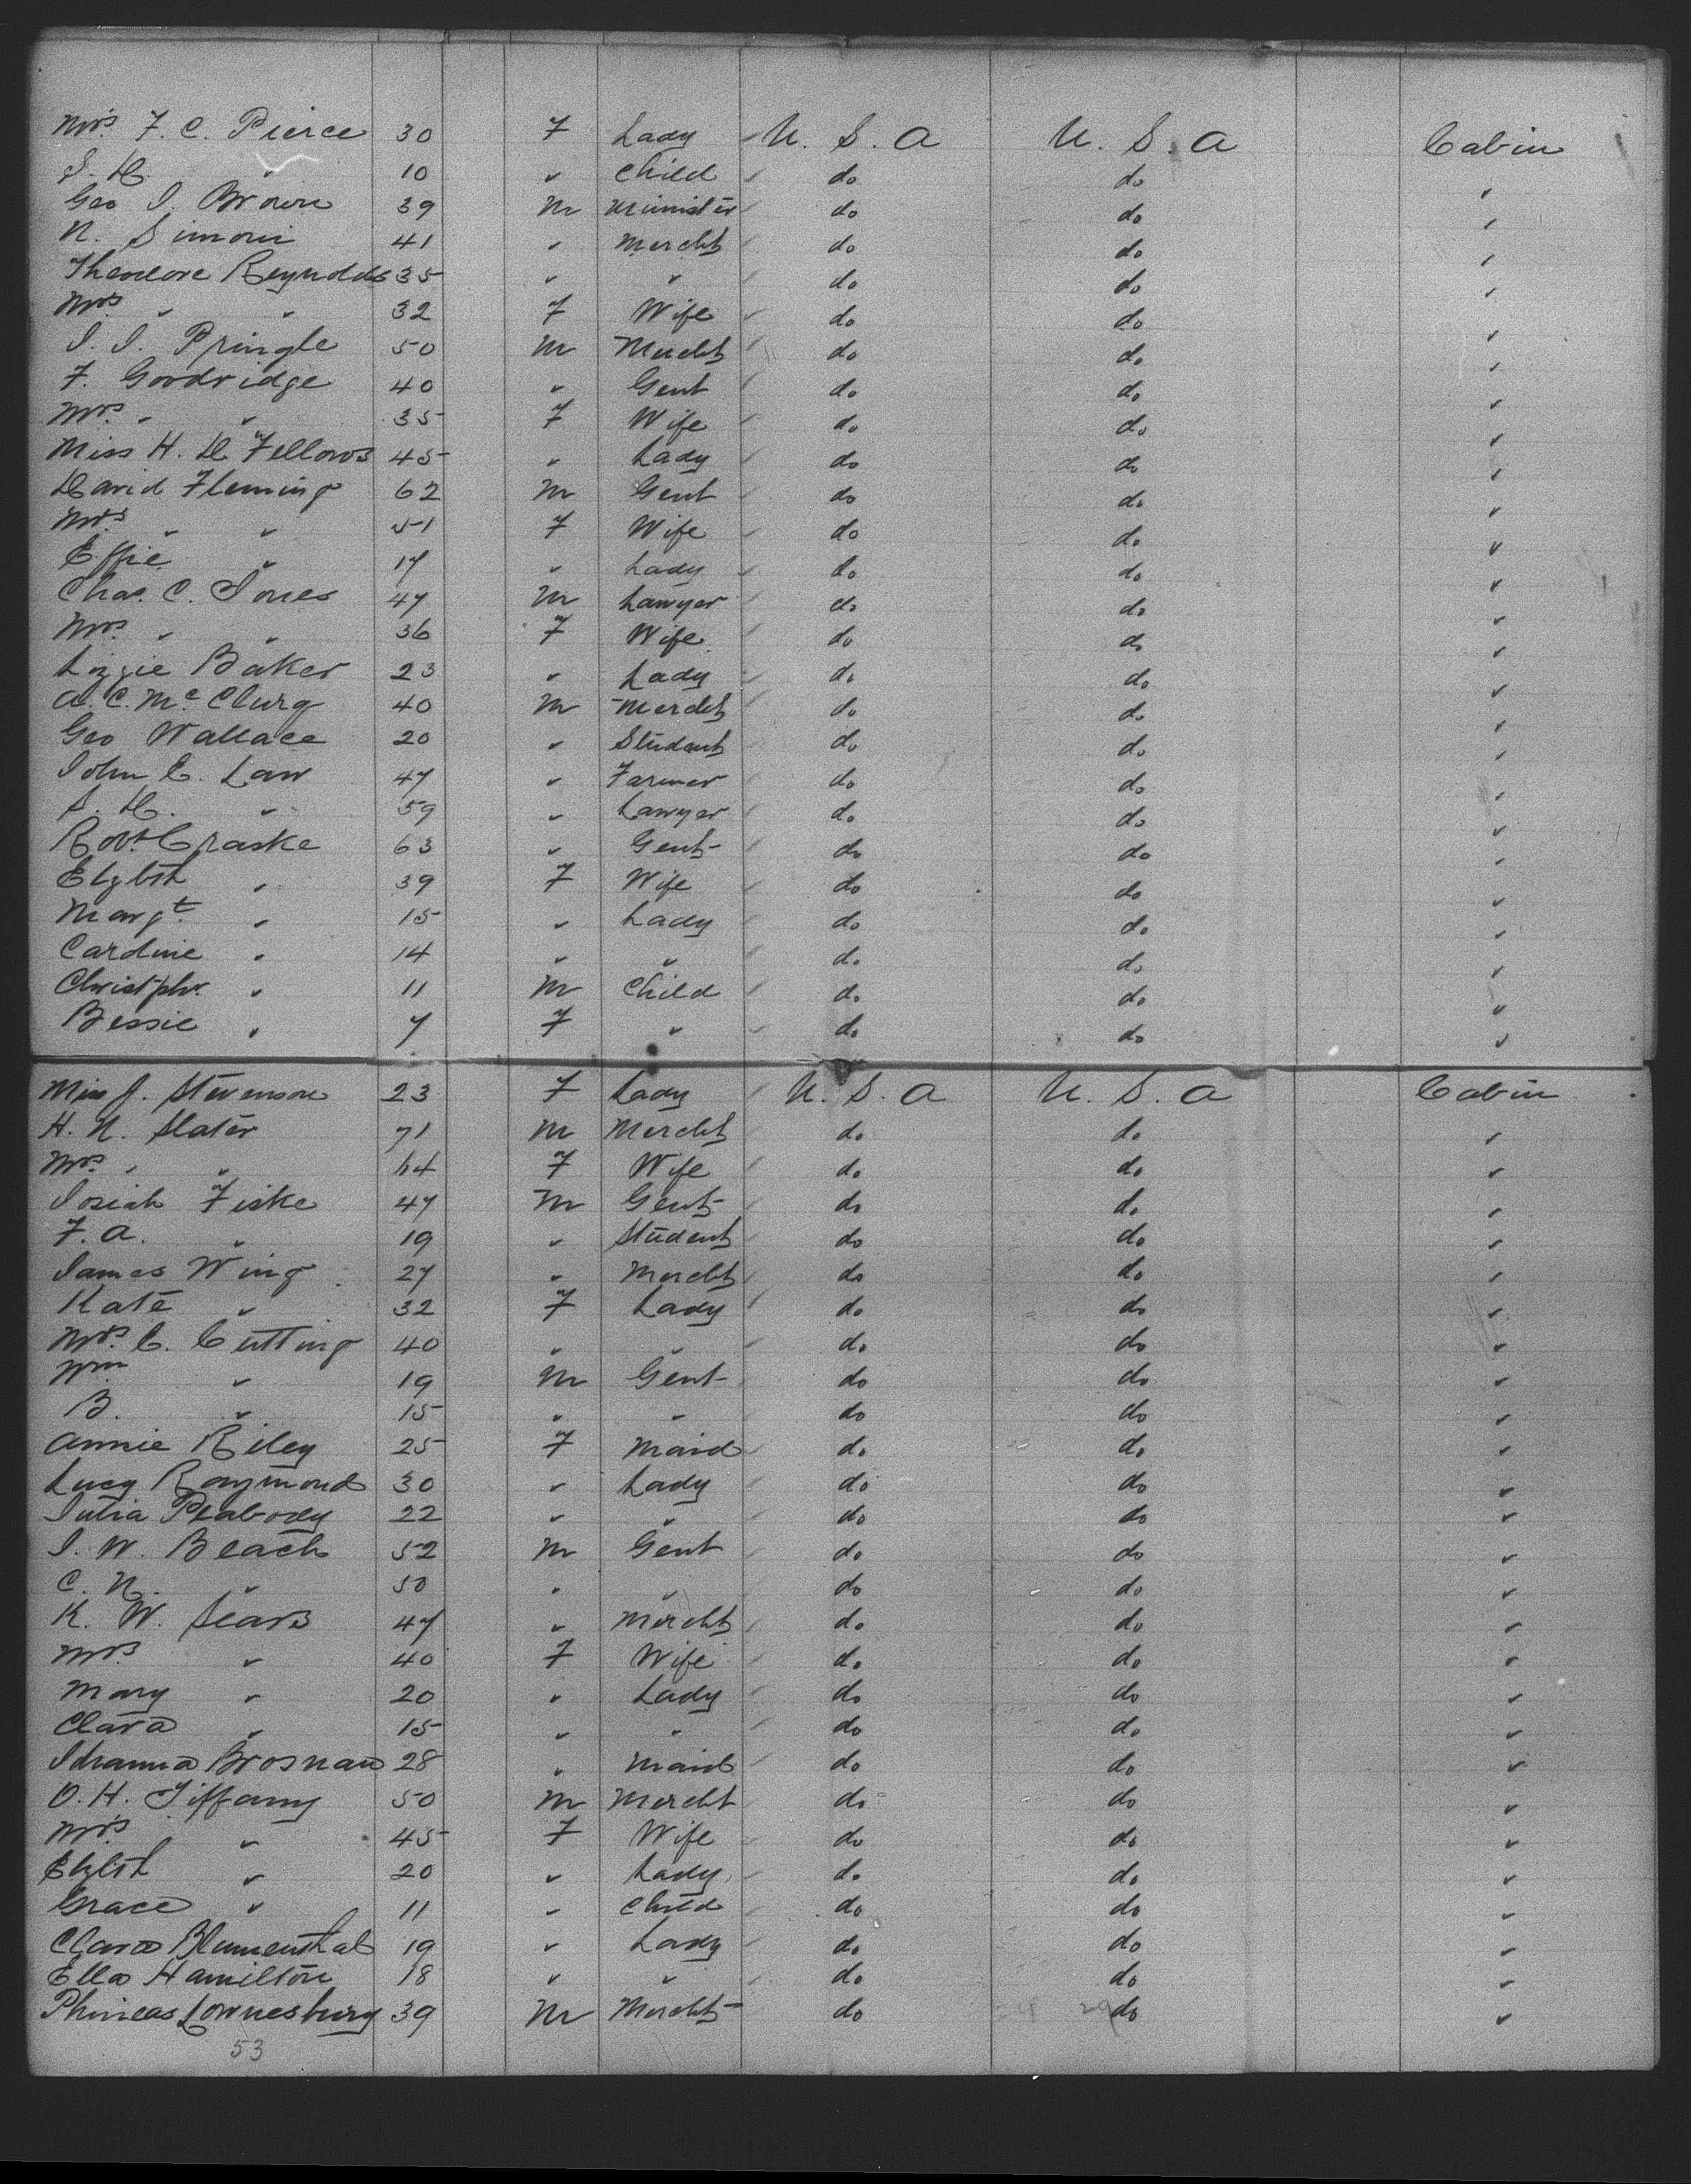 Mrs. F. C. Pierce 30 F Lady U. S. A U. S. A Cabin
S. D. " 10 " Child do do "
Geo I. Brown 39 M Minister do do "
N. Simon 41 " Mercht do do "
Theodore Reynolds 35 " " do do "
Mrs. " " 32 F Wife do do "
J. J. Pringle 50 M Mercht do do "
F. Goodridge 40 " Gent do do "
Mrs. " " 35 F Wife do do "
Miss H. D Fellows 45 " Lady do do "
David Fleming 62 M Gent do do "
Mrs. " " 51 F Wife do do "
Effie " 17 " Lady do do "
Chas. C. Jones 47 M Lawyer do do "
Mrs. " " 36 F Wife do do "
Lizzie Baker 23 " Lady do do "
A. C. Mc Clurg 40 M Mercht do do "
Geo Wallace 20 " Student do do "
John E. Law 47 " Farmer do do "
S. D. " 59 " Lawyer do do "
Robt Craske 63 " Gent do do "
Elzbth " 39 F Wife do do "
Margt. " 15 " Lady do do "
Caroline " 14 " " do do "
Christphr. " 11 M Child do do "
Bessie " 7 F " do do "
Miss J. Stevenson 23 F Lady U. S. A U. S. A Cabin
H. N. Slater 71 M Mercht do do "
Mrs. " " 64 F Wife do do "
Josiah Fiske 47 M Gent do do "
F. A. " 19 " Student do do "
James Wing 27 " Mercht do do "
Kate " 32 F Lady do do "
Mrs. C. Cutting 40 " " do do "
Wm " 19 M Gent do do "
B. " 15 " " do do "
Annie Riley 25 F Maid do do "
Lucy Raymond 30 " Lady do do "
Julia Peabody 22 " " do do "
J. W. Beach 52 M Gent do do "
C. N. " 50 " " do do "
K. W. Sears 47 " Mercht do do "
Mrs. " 40 F Wife do do "
Mary " 20 " Lady do do "
Clara " 15 " " do do "
Johanna Brosnan 28 " Maid do do "
O. H. Tiffany 50 M Mercht do do "
Mrs. " 45 F Wife do do "
Elzbth " 20 " Lady do do "
Grace " 11 " Child do do "
Clara Blumenthal 19 " Lady do do "
Ella Hamilton 18 " " do do "
Phineas Lownesburg 39 M Mercht do do "
53